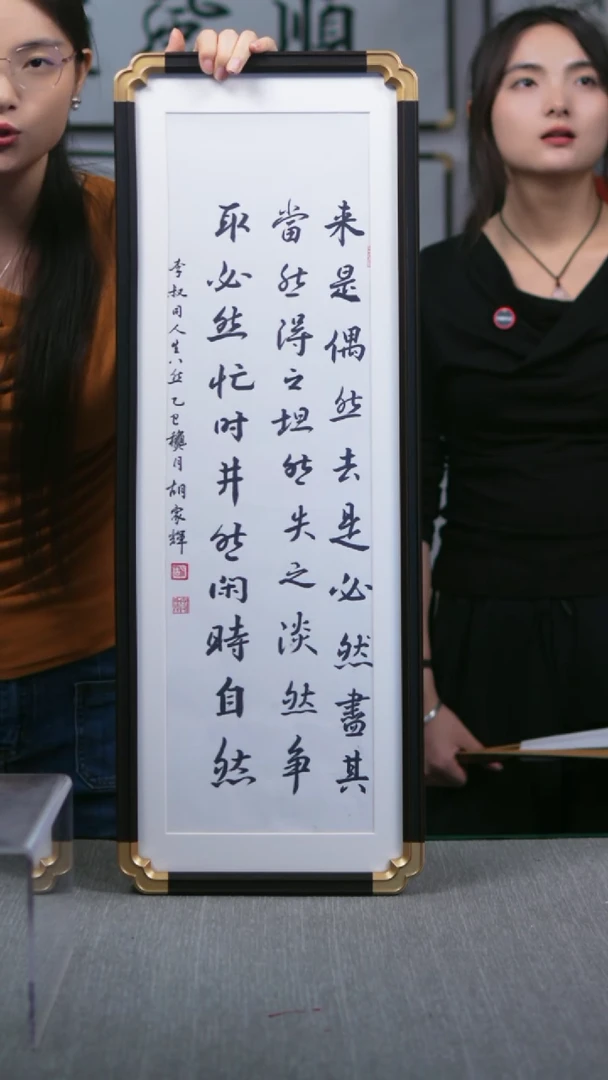 来是偶然去是必然盡其
當然得之坦然失之淡然争
取必然忙时井然闲時自然
李叔同人生八然乙巳穐月胡家輝
順